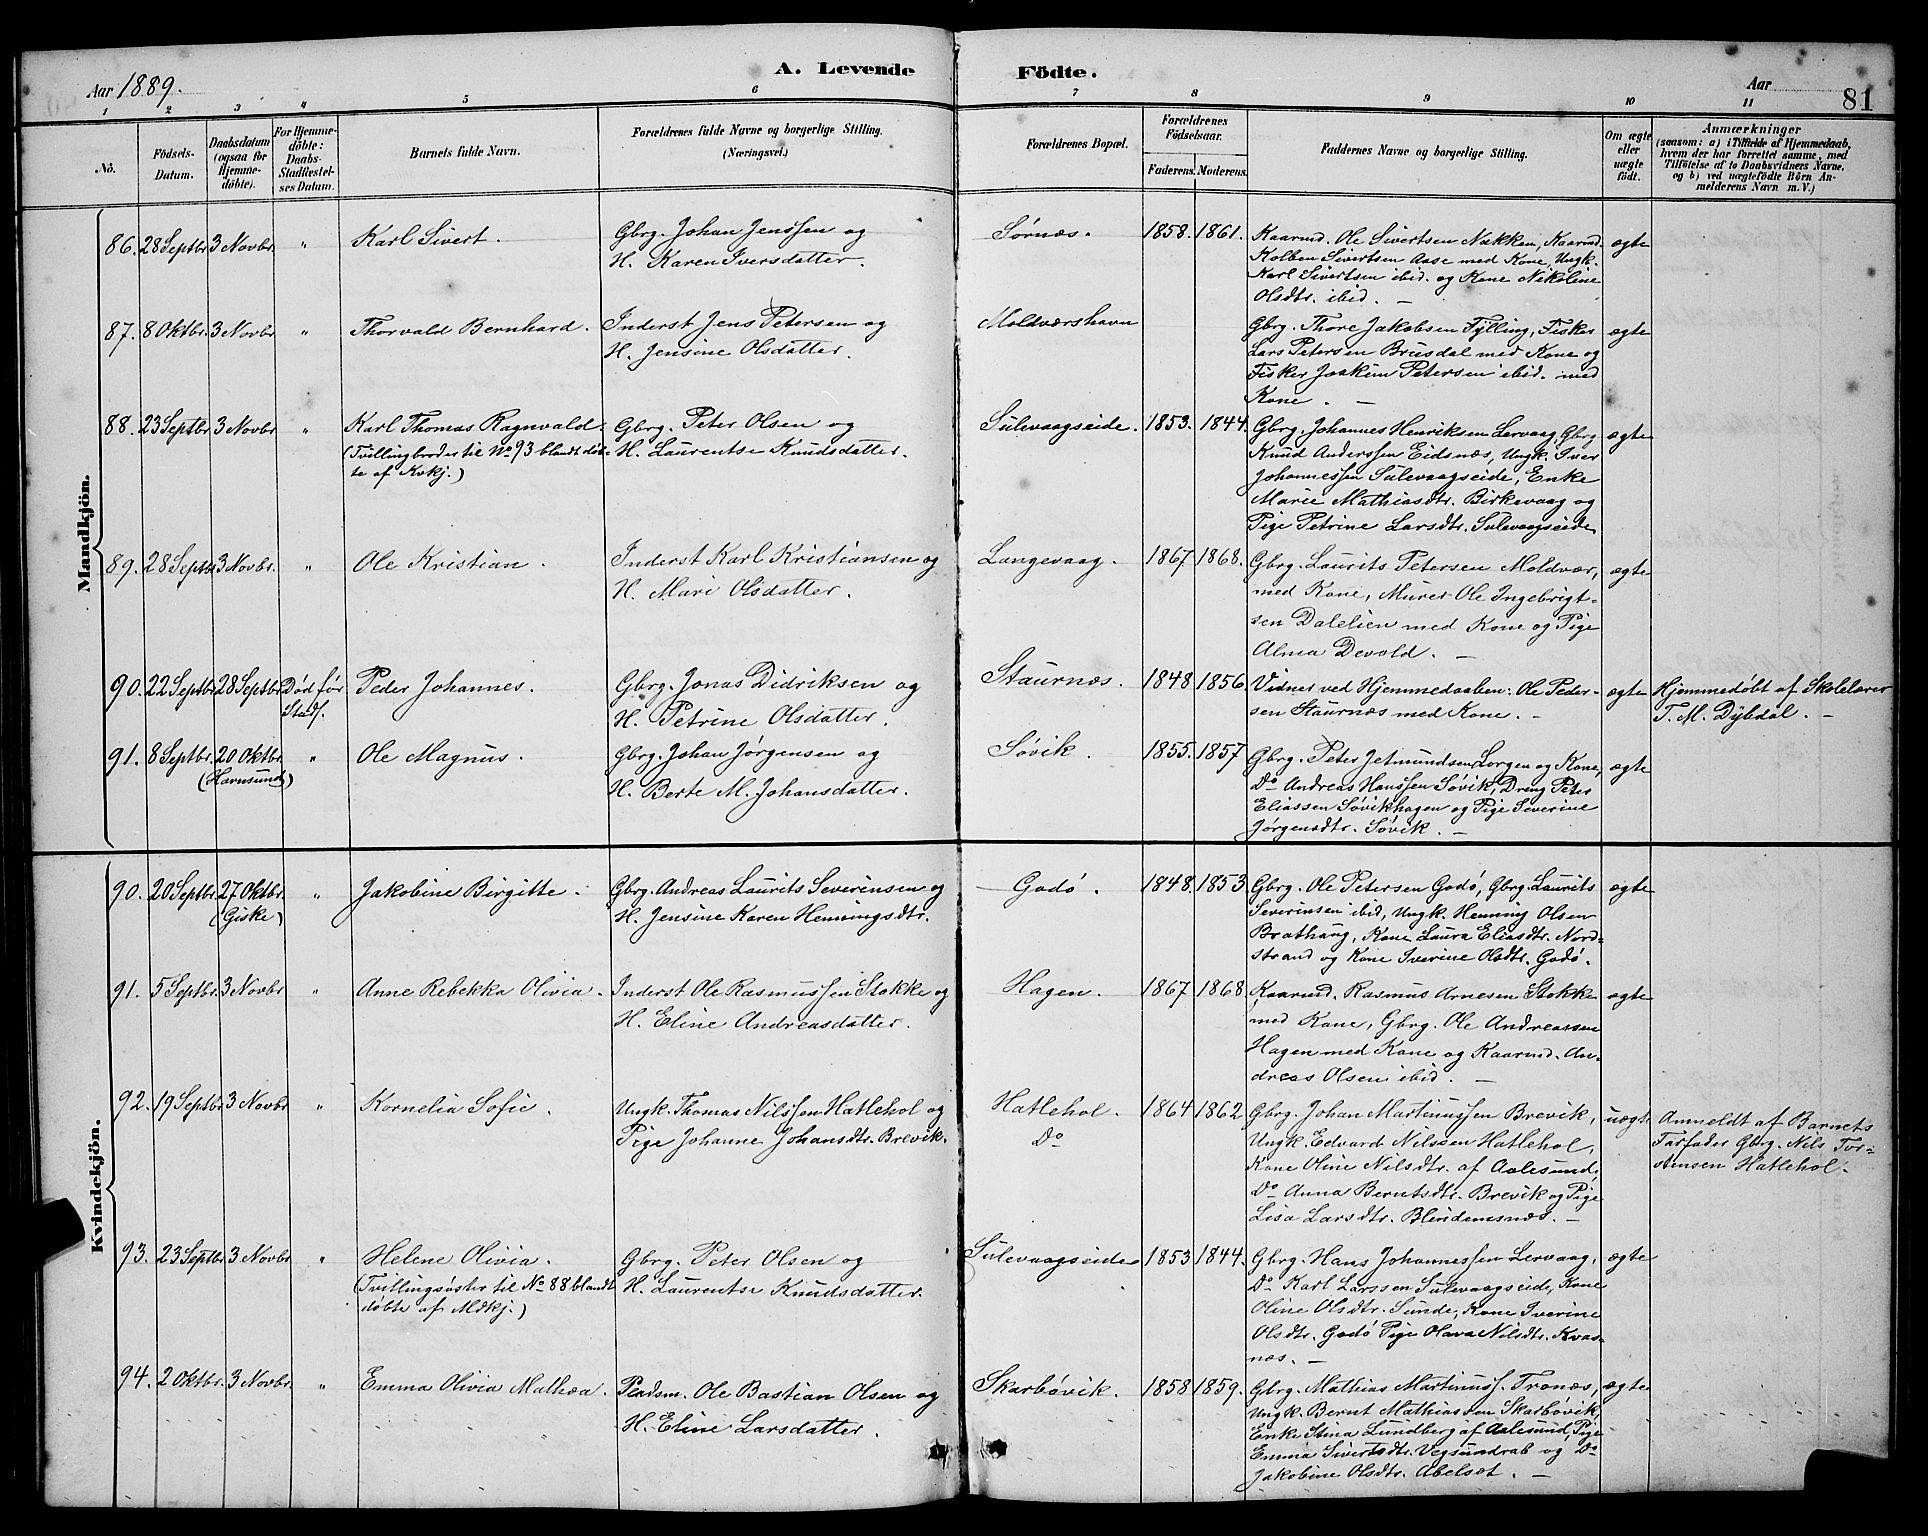 Aar 1889.
A. Levende
Födte.
Aar
81
1 2 3 4 5 6 7 8 9 10 11
No.
Födsels-Datum.
Daabsdatum (ogsaa for Hjemme-döbte).
For Hjemme-döbte: Daabs-Stadfestel-ses Datum.
Barnets fulde Navn.
Forældrenes fulde Navne og borgerlige Stilling.
(Næringsvei.)
Forældrenes Bopæl.
Forældrenes Födselsaar.
Faderens. Moderens.
Faddernes Navne og borgerlige Stilling.
Om ægte eller uægte födt.
Anmærkninger
(saasom: a) i Tilfælde af Hjemmedaab, hvem der har forrettet samme, med Tilföielse af to Daabsvidners Navne, og b) ved uægtefödte Börn An-melderens Navn m. V.)
Mandkjön.
86. 28 Septbr. 3 Novbr. " Karl Sivert. Gbrg. Johan Jenssen og Sørnæs. 1858. 1861. Kaarmd. Ole Sivertsen Nakken, Kaarmd. ægte
H. Karen Iversdatter. Kolben Sivertsen Aase med Kone, Ungk.
Karl Sivertsen ibid. og Kone Nikoline
Olsdtr. ibid. —
87. 8 Oktbr. 3 Novbr. " Thorvald Bernhard. Inderst Jens Petersen og Moldværshavn Gbrg. Thore Jakobsen Fylling, Fisker ægte
H. Jensine Olsdatter. Lars Petersen Brusdal med Kone og
Fisker Joakim Petersen ibid. med
Kone. —
88. 23 Septbr. 3 Novbr. " Karl Thomas Ragnvald. Gbrg. Peter Olsen og Sulevaagseide. 1853. 1844. Gbrg. Johannes Henriksen Lervaag, Gbrg. ægte
(Tvillingbroder til No 93 blandt døb- H. Laurentse Knudsdatter. Knud Anderssen Eidsnæs, Ungk. Iver
te af Kvkj.) Johannessen Sulevaagseide, Enke
Marie Mathiasdtr. Birkevaag og
Pige Petrine Larsdtr. Sulevaagseide
89. 28 Septbr. 3 Novbr. " Ole Kristian. Inderst Karl Kristiansen og Langevaag. 1867. 1868. Gbrg. Laurits Petersen Moldvær, ægte
H. Mari Olsdatter. med Kone, Murer Ole Ingebrigt-
sen Dalelien med Kone og Pige
Alma Devold. —
90. 22 Septbr. 28 Septbr. Død før Peder Johannes. Gbrg. Jonas Didriksen og Staurnæs. 1848 1856. Vidner ved Hjemmedaaben: Ole Peder- ægte Hjemmedøbt af Skolelærer
Stadf. H. Petrine Olsdatter. sen Staurnæs med Kone. — T. M. Dybdal. —
91. 8 Septbr. 20 Oktbr. " Ole Magnus. Gbrg. Johan Jørgensen og Søvik. 1855. 1857 Gbrg. Peter Jetmundsen Lorgen og Kone, ægte
(Hamsund) H. Berte M. Johansdatter. Do Andreas Hanssen Søvik, Dreng Peter
Eliassen Søvikhagen og Pige Severine
Jørgensdtr. Søvik. —
Kvindekjön.
90. 20 Septbr. 27 Oktbr. " Jakobine Birgitte. Gbrg. Andreas Laurits Severinsen og Godø. 1848. 1853 Gbrg. Ole Petersen Godø, Gbrg. Laurits ægte
(Giske) H. Jensine Karen Henningsdtr. Severinsen ibid, Ungk. Henning Olsen
Brathaug, Kone Laura Eliasdtr. Nord-
strand og Kone Iverine Olsdtr. Godø.
91. 5 Septbr. 3 Novbr. " Anne Rebekka Olivia. Inderst Ole Rasmussen Stokke og Hagen. 1867. 1868. Kaarmd. Rasmus Arnesen Stokke ægte
H. Eline Andreasdatter. med Kone, Gbrg. Ole Andreassen
Hagen med Kone og Kaarmd. An-
dreas Olsen ibid. —
92. 19 Septbr. 3 Novbr. " Kornelia Sofie. Ungk. Thomas Nilssen Hatlehol og Hatlehol. 1864 1862 Gbrg. Johan Martinussen Brevik, uægte Anmeldt af Barnets
Pige Johanne Johansdtr. Brevik. Do Ungk. Edvard Nilssen Hatlehol, Farfader Gbrg. Nils Tor-
Kone Oline Nilsdtr. af Aalesund, stensen Hatlehol.
Do Anna Berntsdtr. Brevik og Pige
Lisa Larsdtr. Blindemsnæs. —
93. 23 Septbr. 3 Novbr. " Helene Olivia. Gbrg. Peter Olsen og Sulevaagseide 1853 1844. Gbrg. Hans Johannessen Lervaag, ægte
(Tvillingsøster til No 88 blandt H. Laurentse Knudsdatter. Do Karl Larssen Sulevaagseide, Kone
døbte af Mdkj.) Oline Olsdtr. Sunde, Kone Iverine
Olsdtr. Godø Pige Olava Nilsdtr. Kvas-
næs. —
94. 2 Oktbr. 3 Novbr. " Emma Olivia Mathea. Pladsm. Ole Bastian Olsen og Skarbøvik. 1858 1859. Gbrg. Mathias Martinuss. Tronæs, ægte
H. Eline Larsdatter. Ungk. Bernt Mathiassen Skarbøvik,
Enke Stina Lundberg af Aalesund, Pige
Emma Sivertsdtr. Vegsundrab og Do
Jakobine Olsdtr. Abelset. —